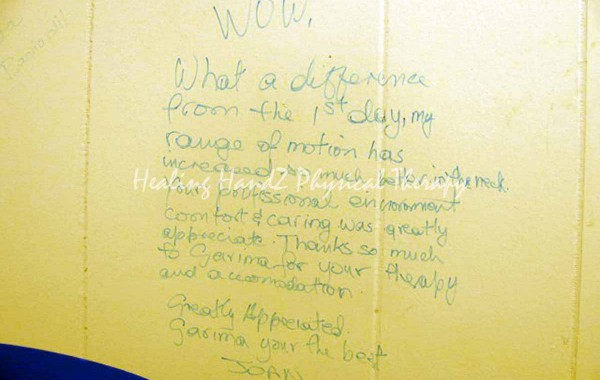 WOW.
What a difference
from the 1st day, my
range of motion has
increased so much better in the neck.
Your professional environment
comfort & caring was greatly
appreciate. Thanks so much
to Garima for your therapy
and accomodation.
Greatly Appreciated.
Garima your the best
JOAN
Healing HandZ Physical Therapy